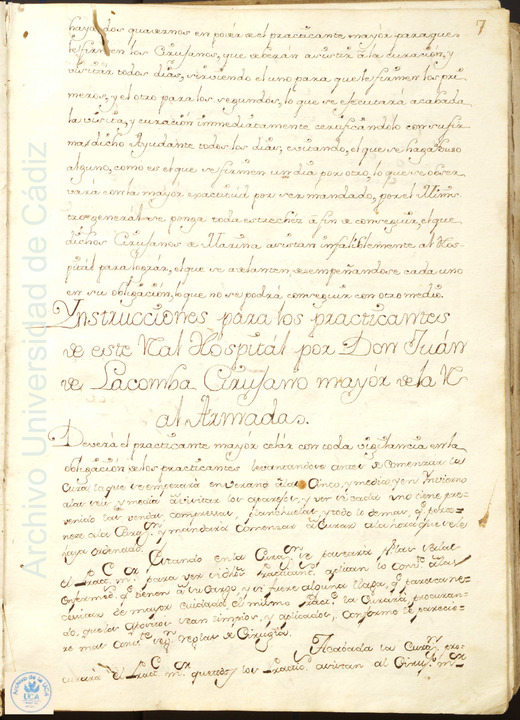 7
haya dos quadernos en poder de el practicante mayór para que en
le firmen los Cirujanos, que deberán asistir á la curación, y
visitar todos dias, sirviendo el uno para que le firmen los pri
meros, y el otro para los segundos, lo que se efectuará acabada
la visita, y curación immediatamente certificandolo con su fir
ma dicho Ayudante todos los dias; evitando, el que se haga abuso
alguno, como es el que se firmen un dia por otro, lo que se obser
vará con la mayor exactitud por ser mandado, por el Minis
tro general se ponga toda estrechéz á fin de conseguir, el que
dichos Cirujanos de Marina asistan infaliblemente al Hos-
pitál para lográr, el que se adelanten, desempeñandose cada uno
en su obligación, lo que no se podrá conseguir con otro medio.
Ynstrucciones para los practicantes
de este Rl Hospitál por Don Juán
de Lacomba Cirujano mayór de la R
al Armada.
Deverá el practicante mayór celár con toda vigilancia en la
obligación de los practicantes levantandose antes de comenzar la
Cura, lo que se empezará en verano á las Cinco, y media, y en Invierno
á las seis y media á visitar los aparejos, y ver si cada uno tiene pre-
venido las vendas compressas, planchuelas, y todo lo demas, q.e perte-
nese á la Ciru.a, y mandará comenzar á Curar á la hora que se le
haya ordenado. Estando en la Cura se paseará
el Pract. m.r para ver si dhos Practican.s aplican lo conv.te á los
enfermos q.e tienen á su cargo, y si fuere alguna llaga, q.e paresca ne-
cesitar de mayor cuidado el mismo Pract. la Curará, procuran-
do, que los aposítos sean limpios, y aplicados, conforme le parecie-
re mas conv.te seg.n reglas de Cirugia.
Acabada la Cura, pro-
curará el Pract. m.r que todos los Practic. asistan al Ciruj.o m.r
Archivo Universidad de Cádiz
Archivo de la UCA
UCA